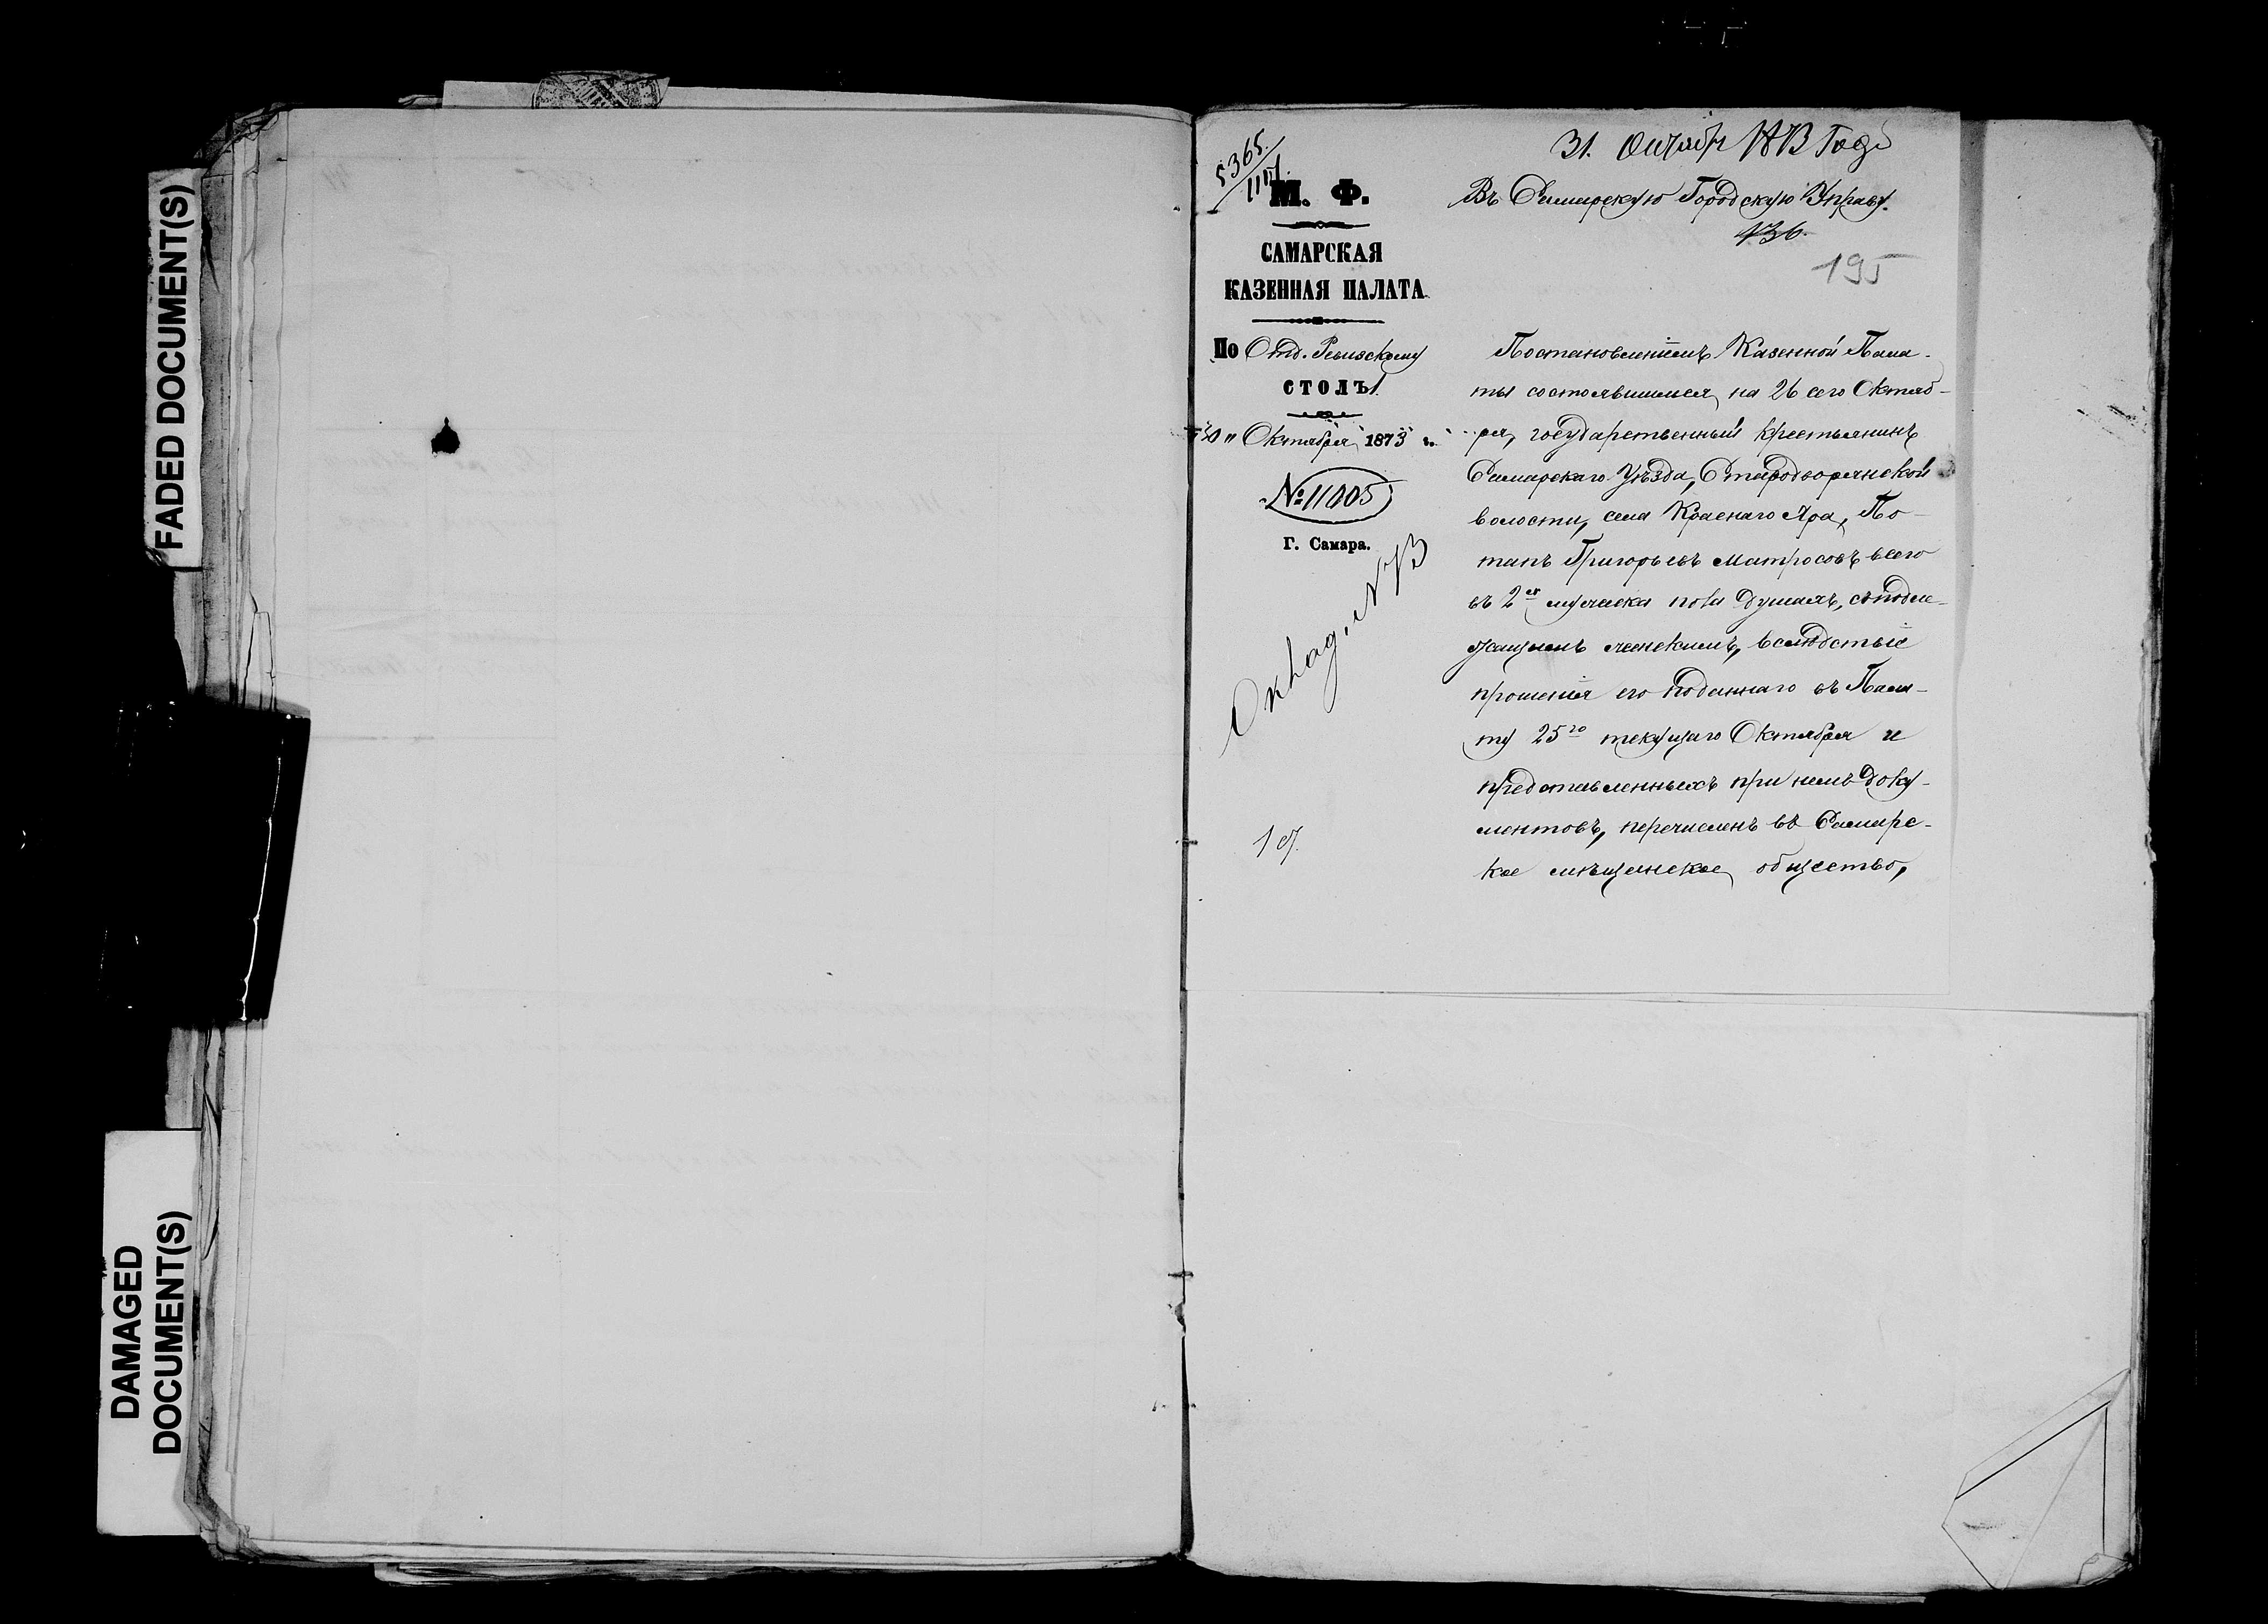 FADED DOCUMENT(S)
DAMAGED
DOCUMENT(S)
5365.
М. Ф.
САМАРСКАЯ
КАЗЕННАЯ ПАЛАТА
По Отд. Ревизскому
СТОЛЪ 1.
30 " Октября 1873 г.
№ 11005
Г. Самара.
31. Октября 1873 Года
Въ Самарскую Городскую Управу.
136.
195
Постановленіемъ Казенной Пала-
ты состоявшимся, на 26 сего Октяб-
ря, государственный крестьянинъ
Самарскаго Уѣзда, Стародворянской
волости, села Краснаго Яра, По-
тапъ Григорьевъ Матросовъ всего
въ 2хъ мужска пола душахъ, съ подле-
жащимъ женскимъ, вслѣдствіе
прошенія его поданнаго въ Пала-
ту 25го текущаго Октября и
представленныхъ при немъ доку-
ментовъ, перечисленъ въ Самарс-
кое мѣщанское общество,